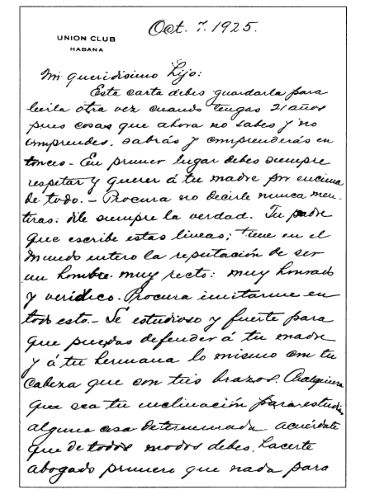 Oct. 7. 1925.
UNION CLUB
HABANA
Mi queridisimo hijo:
Esta carta debes guardarla para
leerla otra vez cuando tengas 21 años
pues cosas que ahora no sabes y no
comprendes, sabrás y comprenderás en
tonces - En primer lugar debes siempre
respetar y querer á tu madre por encima
de todo. - Procura no decirle nunca men-
tiras: dile siempre la verdad. Tu padre
que escribe estas lineas; tiene en el
mundo entero la reputación de ser
un hombre muy recto: muy honrado
y verídico. Procura imitarme en
todo esto. - Sé estudioso y fuerte para
que puedas defender á tu madre
y á tu hermana lo mismo con tu
cabeza que con tus brazos. Cualquiera
que sea tu inclinación para estudiar
alguna cosa determinada acuérdate
que de todos modos debes hacerte
abogado primero que nada para